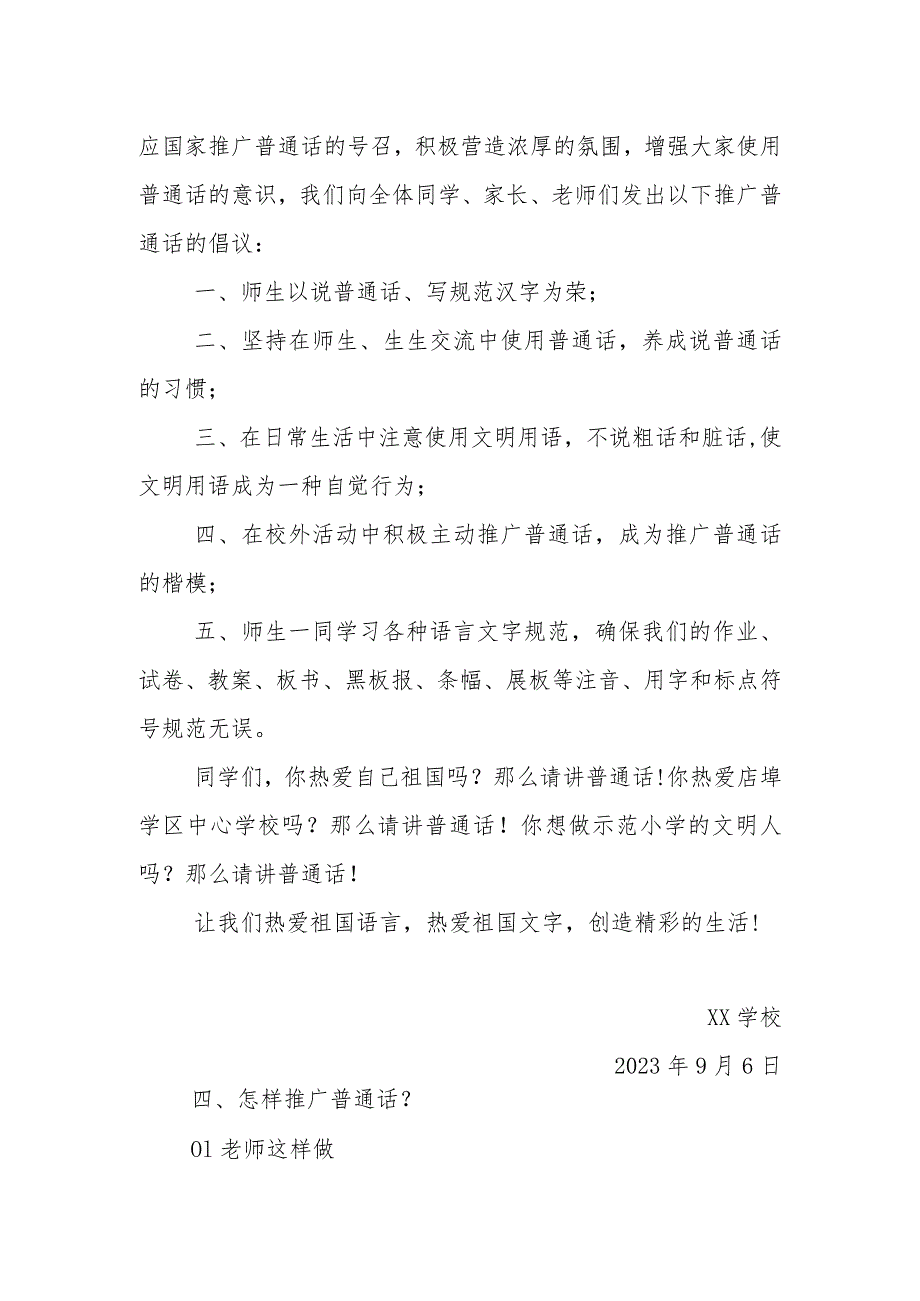 应国家推广普通话的号召，积极营造浓厚的氛围，增强大家使用
普通话的意识，我们向全体同学、家长、老师们发出以下推广普
通话的倡议：
一、师生以说普通话、写规范汉字为荣；
二、坚持在师生、生生交流中使用普通话，养成说普通话
的习惯；
三、在日常生活中注意使用文明用语，不说粗话和脏话,使
文明用语成为一种自觉行为；
四、在校外活动中积极主动推广普通话，成为推广普通话
的楷模；
五、师生一同学习各种语言文字规范，确保我们的作业、
试卷、教案、板书、黑板报、条幅、展板等注音、用字和标点符
号规范无误。
同学们，你热爱自己祖国吗？那么请讲普通话!你热爱店埠
学区中心学校吗？那么请讲普通话！你想做示范小学的文明人
吗？那么请讲普通话！
让我们热爱祖国语言，热爱祖国文字，创造精彩的生活!
XX 学校
2023 年 9 月 6 日
四、怎样推广普通话？
Ol 老师这样做